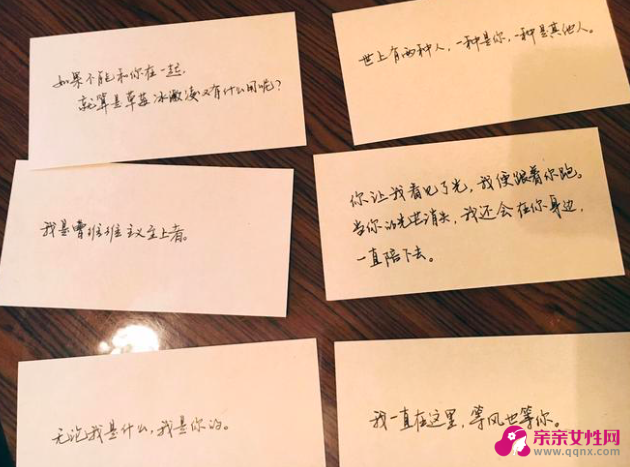 如果不能和你在一起,
就算是草莓冰激凌又有什么用呢?
世上有两种人,一种是你,一种是其他人。
我是曹班班主义至上者。
你让我看见了光,我便跟着你跑。
当你的光芒消失,我还会在你身边,
一直陪下去。
无论我是什么,我是你的。
我一直在这里,等风也等你。
亲亲女性网
www.qqnx.com